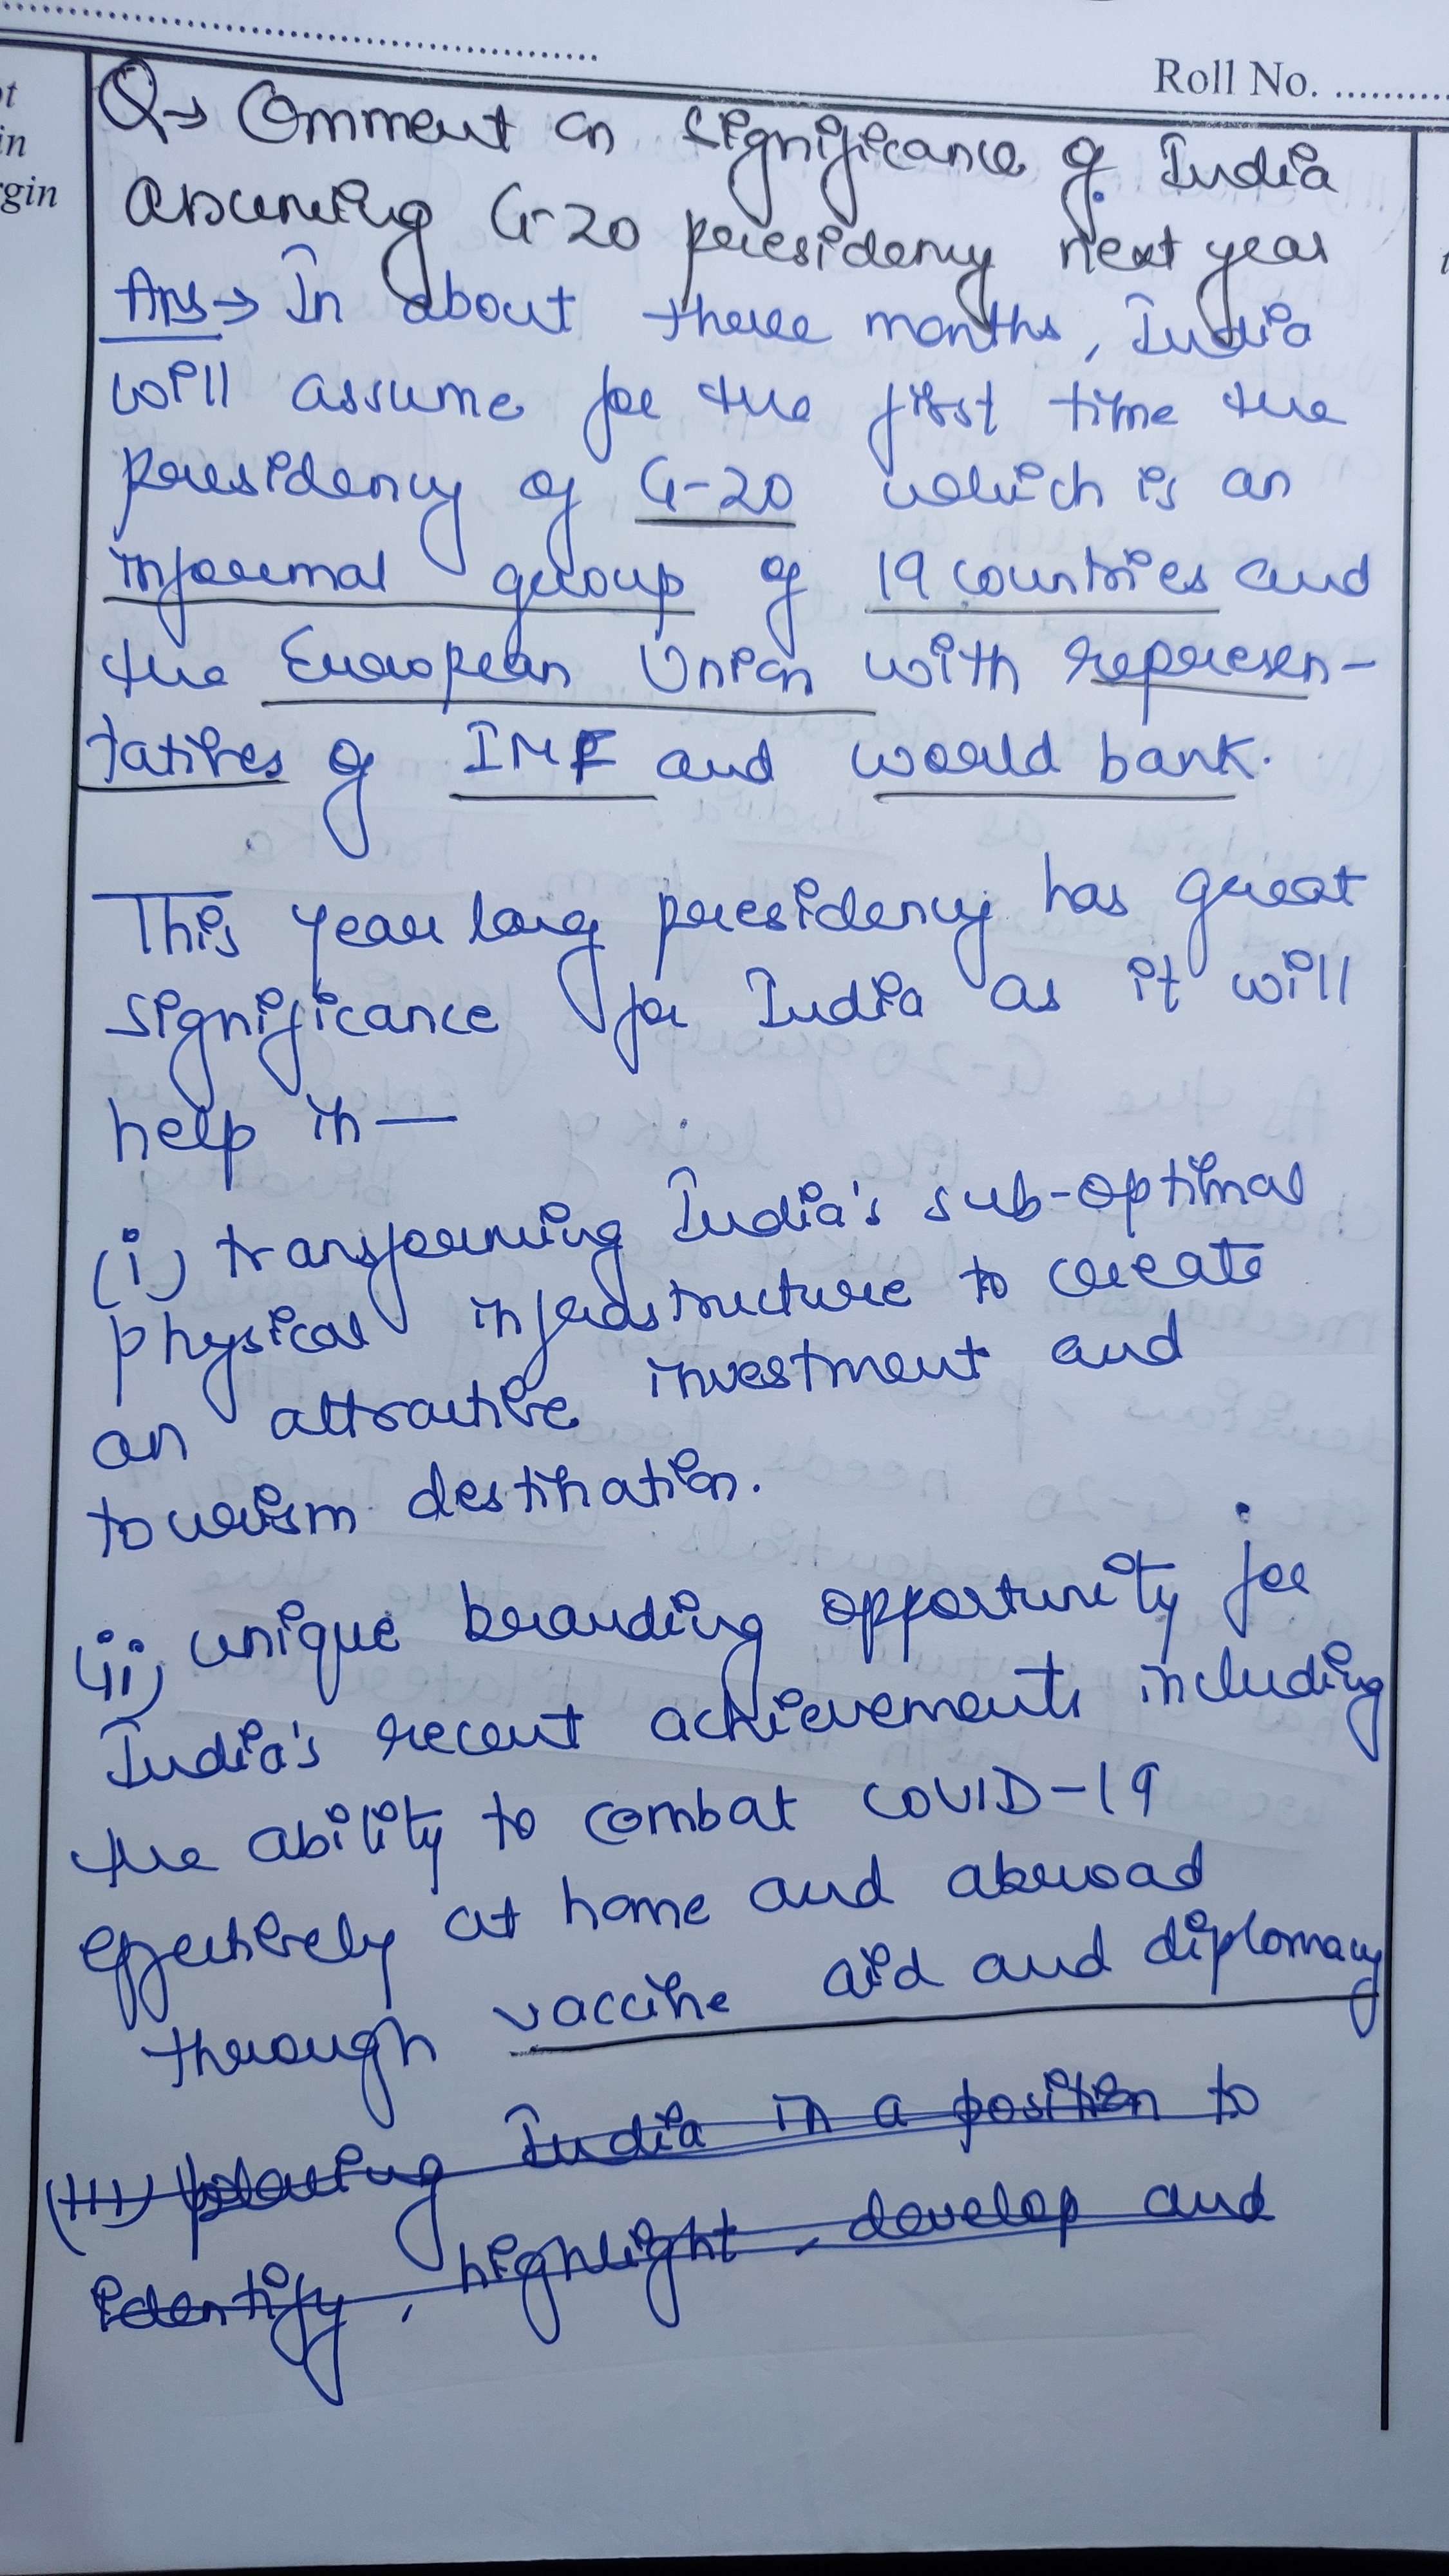 Roll No. ..........
ot
in
rgin
Q→ Comment on significance of India
assuming G-20 presidency next year
Ans→ In about three months, India
will assume for the first time the
presidency of G-20 which is an
informal group of 19 countries and
the European Union with represen-
tatives of IMF and world bank.
This year long presidency has great
significance for India as it will
help in —
(i) transforming India's sub-optimal
physical infrastructure to create
an attractive investment and
tourism destination.
(ii) unique branding opportunity for
India's recent achievements including
the ability to combat COVID-19
effectively at home and abroad
through vaccine aid and diplomacy
(iii) placing India in a position to
identify, highlight, develop and